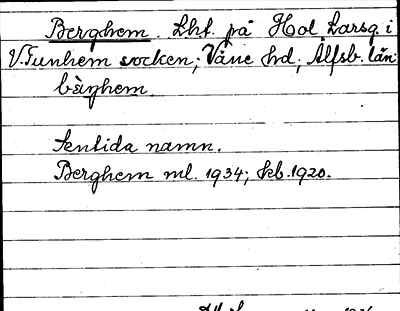 Berghem. Lht. på Hol Larsg. i
V. Tunhem socken; Väne hd; Älfsb. län.
bärghem.
Sentida namn.
Berghem ml. 1934; kb. 1920.